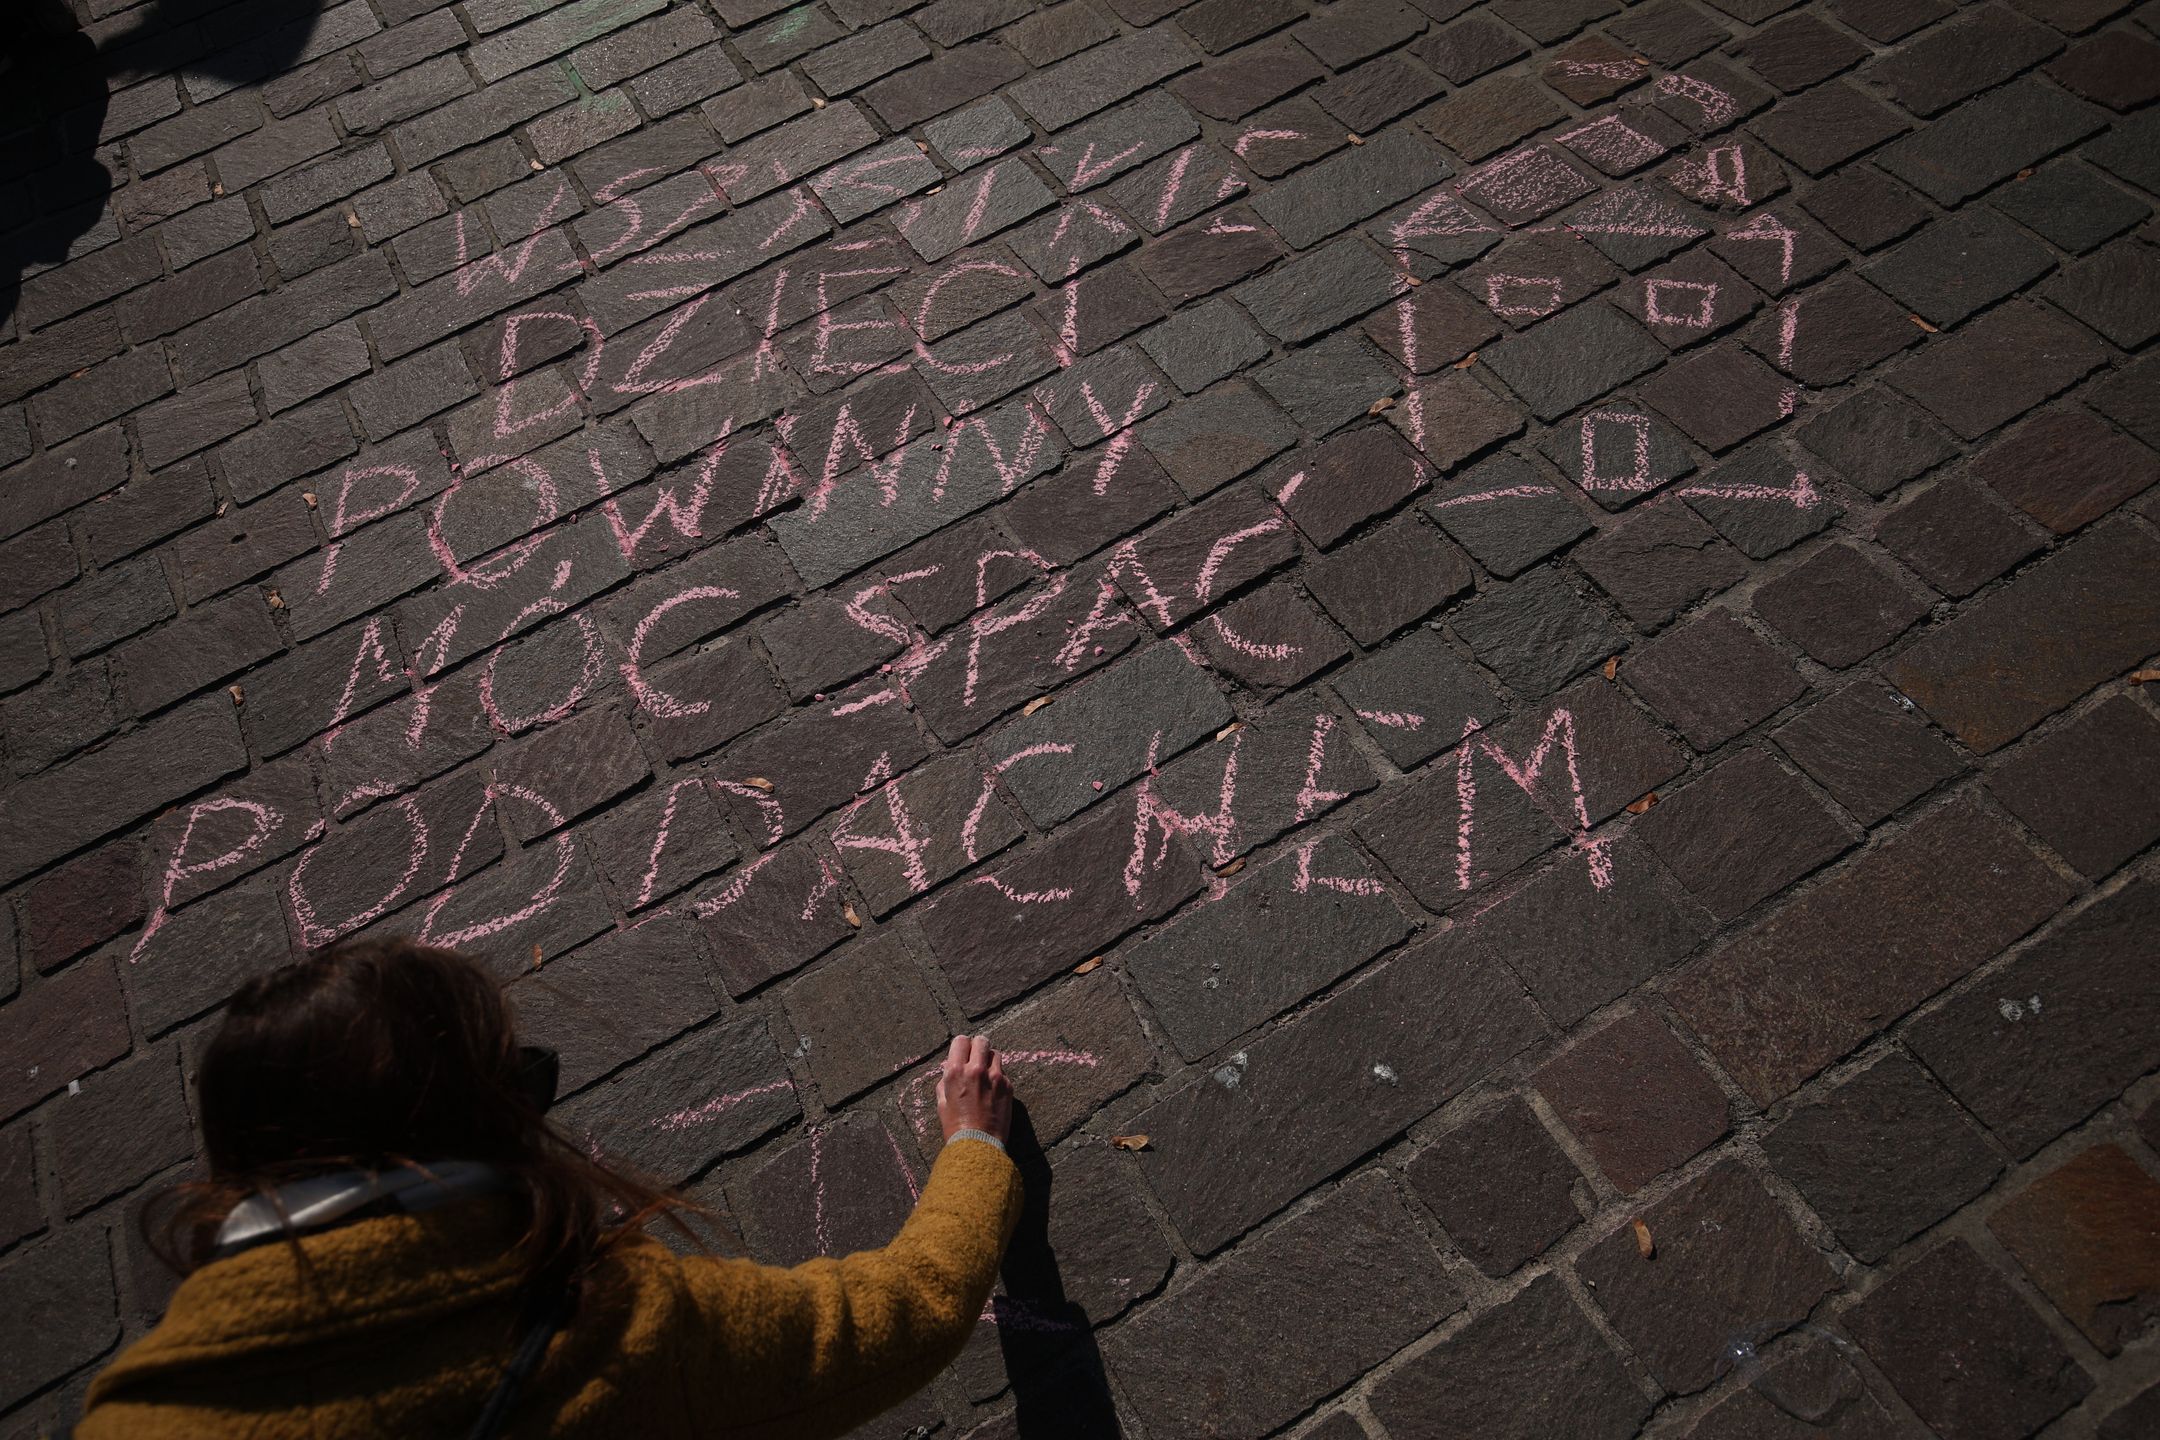 WSZYSTKIE
DZIECI
POWINNY
MÓC SPAĆ
POD DACHEM